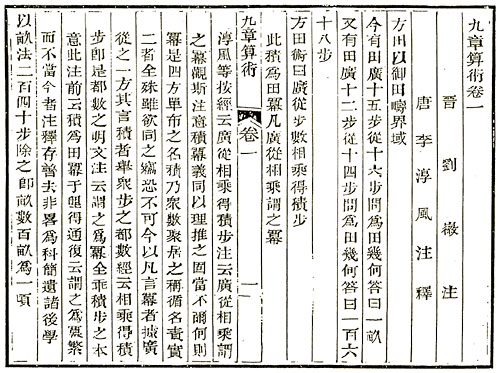 九章算術卷一
晉 劉徽 注
唐 李淳風 注釋
方田以御田疇界域
今有田廣十五步從十六步問為田幾何答曰一畝
又有田廣十二步從十四步問為田幾何答曰一百六
十八步
方田術曰廣從步數相乘得積步
此積為田冪凡廣從相乘謂之冪
九章算術 卷一 一
淳風等按經云廣從相乘得積步注云廣從相乘謂
之冪觀斯注意積冪義同以理推之固當不爾何則
冪是四方單布之名積乃衆數聚居之稱循名責實
二者全殊雖欲同之竊恐不可今以凡言冪者據廣
從之一方其言積者舉衆步之都數經云相乘得積
步即是都數之明文注云謂之為冪全乖積步之本
意此注前云積為田冪于理得通復云謂之為冪繁
而不當今者注釋存善去非畧為科簡遺諸後學
以畝法二百四十步除之即畝數百畝為一頃